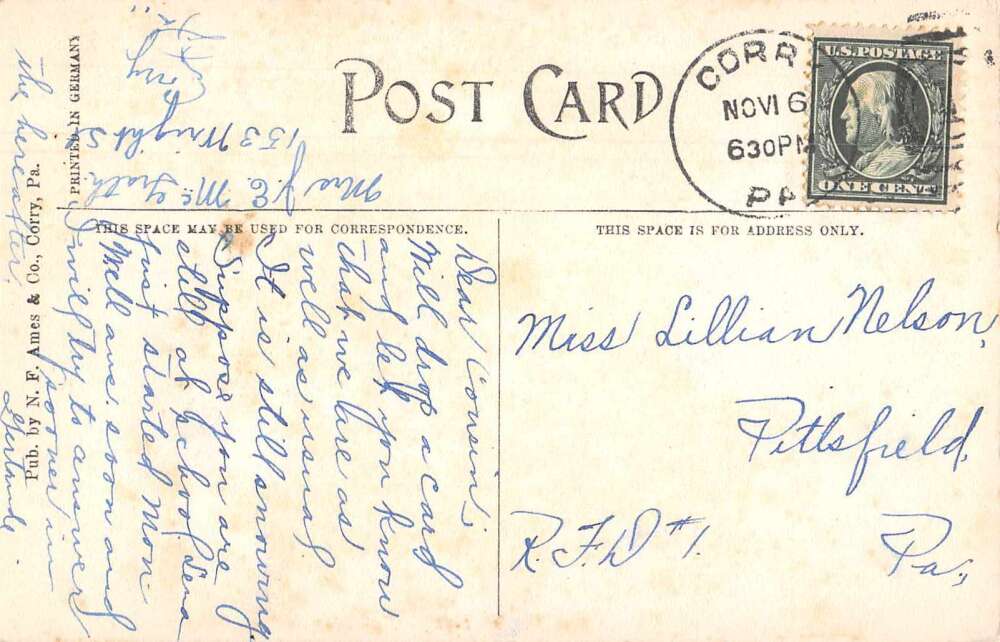 POST CARD
CORRY
NOV 16
630 PM
PA
U.S. POSTAGE
ONE CENT
PRINTED IN GERMANY
Pub. by N. F. Ames & Co., Corry, Pa.
THIS SPACE MAY BE USED FOR CORRESPONDENCE.
THIS SPACE IS FOR ADDRESS ONLY.
Miss Lillian Nelson,
Pittsfield,
R.F.D #1. Pa.,
Dear Cousin;
Will drop a card
and let you know
that we are as
well as usual.
It is still snowing
Suppose you are
still at school Lena
just started Mon.
Well ans. soon and
I will try to answer
sooner in
the hereafter.
Gertrude.
Mrs J. E. McGrath
153 Wright St
Corry